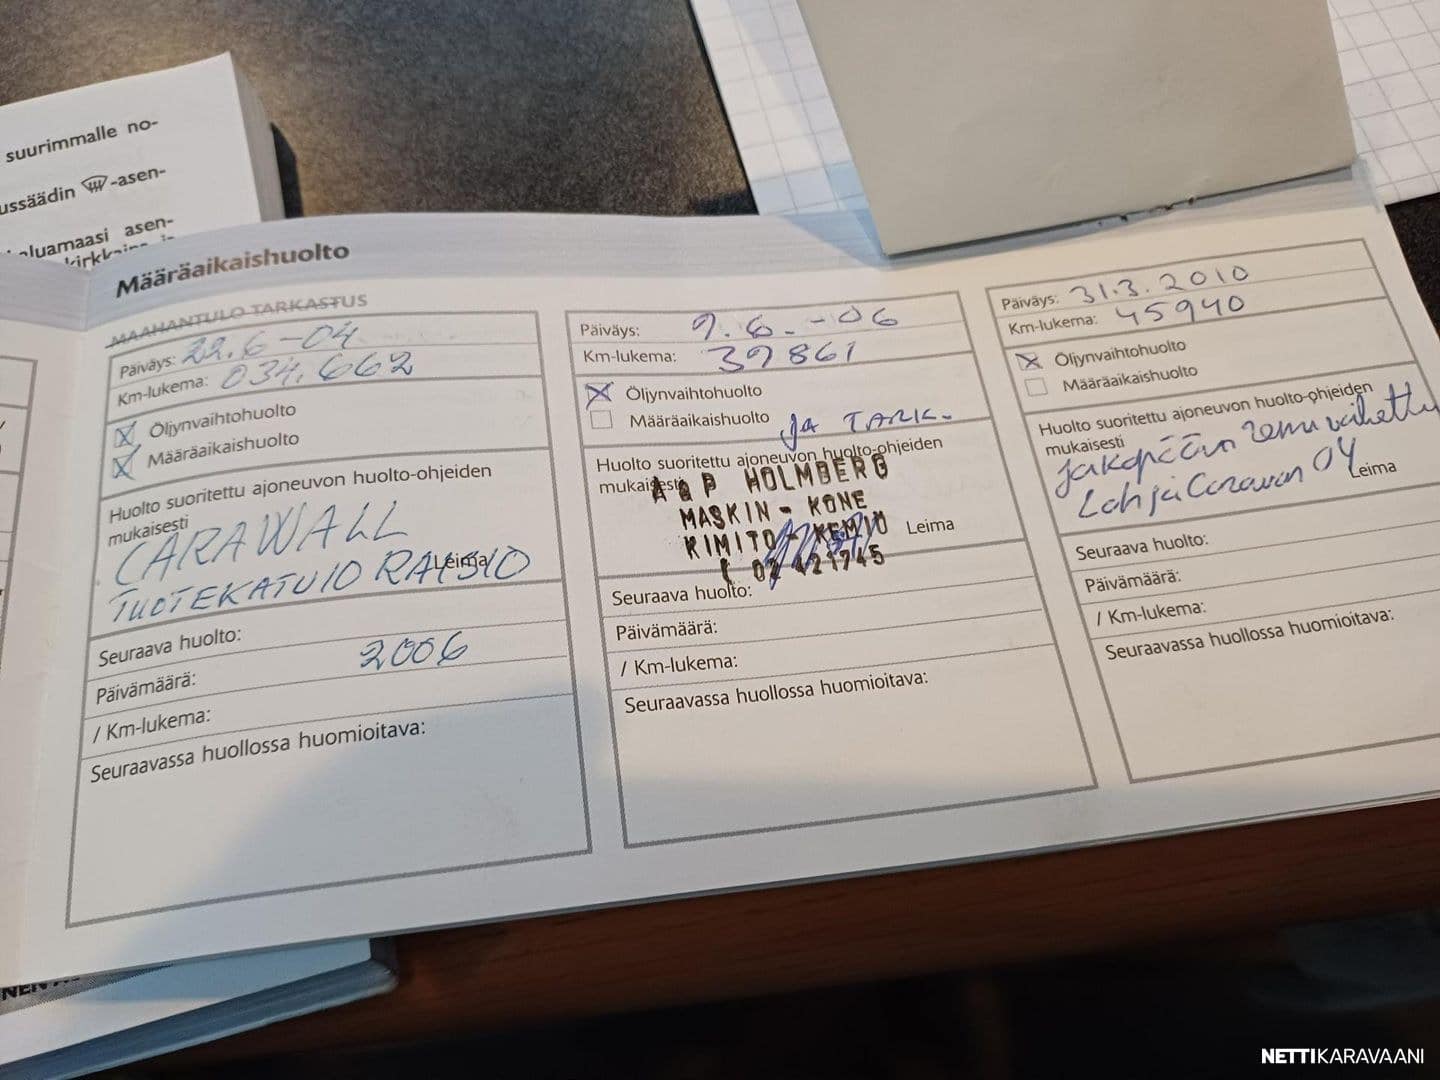 suurimmalle no-
ussäädin -asen-
luamaasi asen-
Määräaikaishuolto
MAAHANTULO TARKASTUS
Päiväys: 22.6-04
Km-lukema: 034.662
Öljynvaihtohuolto
Määräaikaishuolto
Huolto suoritettu ajoneuvon huolto-ohjeiden
mukaisesti
CARAWALL
Leima
TUOTEKATU 10 RAISIO
Seuraava huolto:
Päivämäärä: 2006
/ Km-lukema:
Seuraavassa huollossa huomioitava:
Päiväys: 9.6.-06
Km-lukema: 39861
Öljynvaihtohuolto
Määräaikaishuolto ja TARK.
Huolto suoritettu ajoneuvon huolto-ohjeiden
mukaisesti
A & P HOLMBERG
MASKIN - KONE
KIMITO - KEMIÖ
Leima
02 421745
Seuraava huolto:
Päivämäärä:
/ Km-lukema:
Seuraavassa huollossa huomioitava:
Päiväys: 31.3.2010
Km-lukema: 45940
Öljynvaihtohuolto
Määräaikaishuolto
Huolto suoritettu ajoneuvon huolto-ohjeiden
mukaisesti
Jakopään remmi vaihettu
Lohja Caravan OY
Leima
Seuraava huolto:
Päivämäärä:
/ Km-lukema:
Seuraavassa huollossa huomioitava:
NETTIKARAVAANI